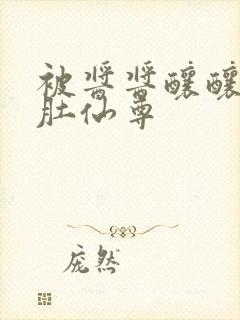 被酱酱酿酿
肚仙尊
庞然